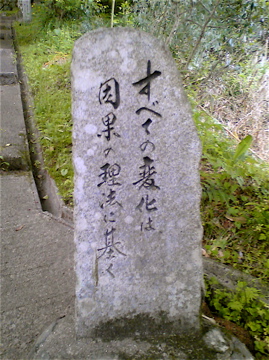 すべての変化は
因果の理法に基く